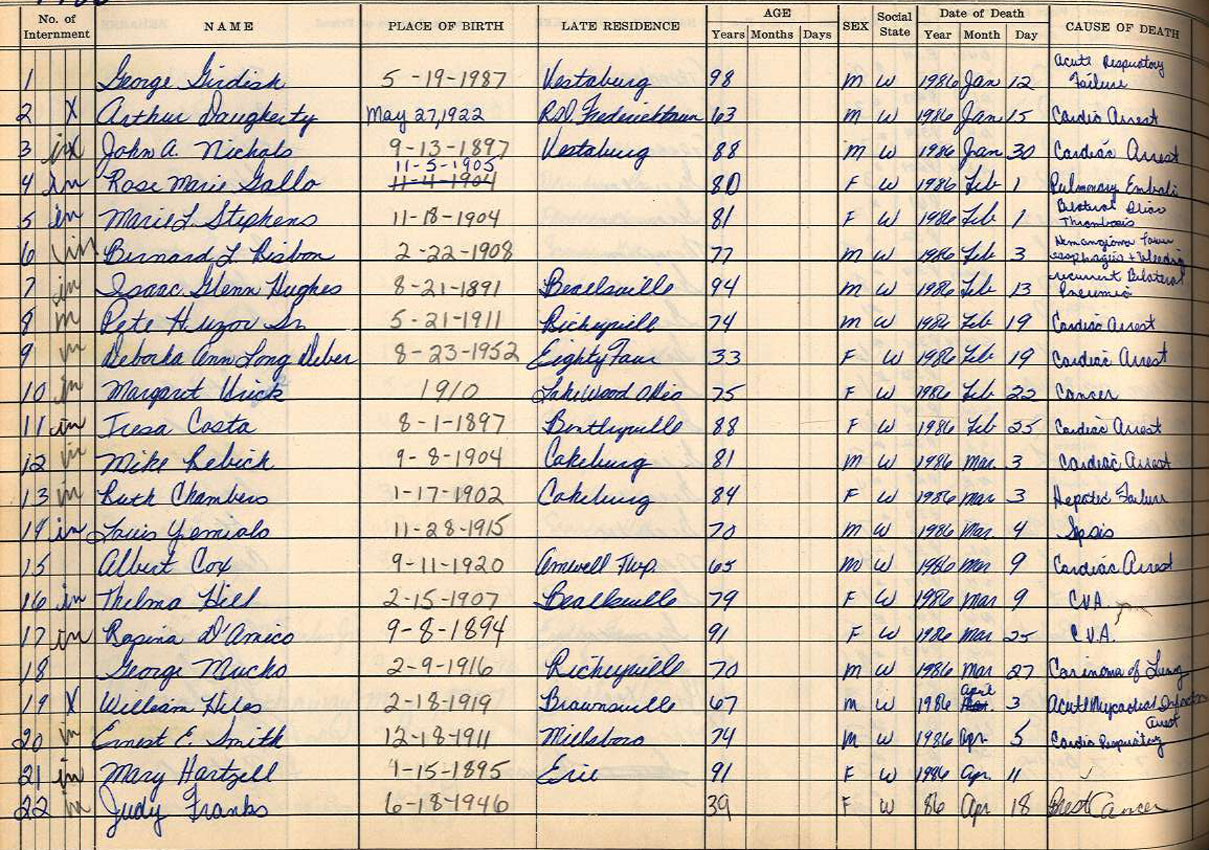 No. of Internment NAME PLACE OF BIRTH LATE RESIDENCE AGE Years Months Days SEX Social State Date of Death Year Month Day CAUSE OF DEATH
1 George Girdish 5-19-1987 Vestaburg 98 M W 1986 Jan 12 Acute Respiratory Failure
2 X Arthur Daugherty May 27, 1922 RD. Fredericktown 63 M W 1986 Jan 15 Cardio Arrest
3 X John A. Nichols 9-13-1897 Vestaburg 88 M W 1986 Jan 30 Cardiac Arrest
4 in Rose Marie Gallo 11-5-1905 11-4-1904 80 F W 1986 Feb 1 Pulmonary Emboli
5 in Marie L. Stephens 11-18-1904 81 F W 1986 Feb 1 Bilateral Thrombosis
6 in Bernard L. Lisbon 2-22-1908 77 M W 1986 Feb 3 Hemangioma lower esophagus + bleeding
7 in Isaac Glenn Hughes 8-21-1891 Beallsville 94 M W 1986 Feb 13 recurrent Bilateral Pneumonia
8 in Pete Huzov Sr 5-21-1911 Richeyville 74 M W 1986 Feb 19 Cardio Arrest
9 in Deborha Ann Long Deber 8-23-1952 Eighty Four 33 F W 1986 Feb 19 Cardiac Arrest
10 in Margaret Urick 1910 Lakewood Ohio 75 F W 1986 Feb 22 Cancer
11 in Tresa Costa 8-1-1897 Bentleyville 88 F W 1986 Feb 25 Cardiac Arrest
12 in Mike Rebich 9-8-1904 Cokeburg 81 M W 1986 Mar. 3 Cardiac Arrest
13 in Ruth Chambers 1-17-1902 Cokeburg 84 F W 1986 Mar 3 Hepatic Failure
14 in Louis Yemialo 11-28-1915 70 M W 1986 Mar. 4 Sepsis
15 Albert Cox 9-11-1920 Amwell Twp. 65 M W 1986 Mar 9 Cardiac Arrest
16 in Thelma Hill 2-15-1907 Beallsville 79 F W 1986 Mar 9 CVA
17 in Rosina D'Amico 9-8-1894 91 F W 1986 Mar 25 C.V.A.
18 George Mucho 2-9-1916 Richeyville 70 M W 1986 Mar 27 Carinoma of Lung
19 X William Hiles 2-18-1919 Brownsville 67 M W 1986 April Mar. 3 Acute Myocardial Infarction
20 in Ernest E. Smith 12-18-1911 Millsboro 74 M W 1986 Apr. 5 Cardio Respiratory Arrest
21 in Mary Hartzell 1-15-1895 Erie 91 F W 1986 Apr. 11
22 in Judy Franks 6-18-1946 39 F W 86 Apr 18 Brest Cancer